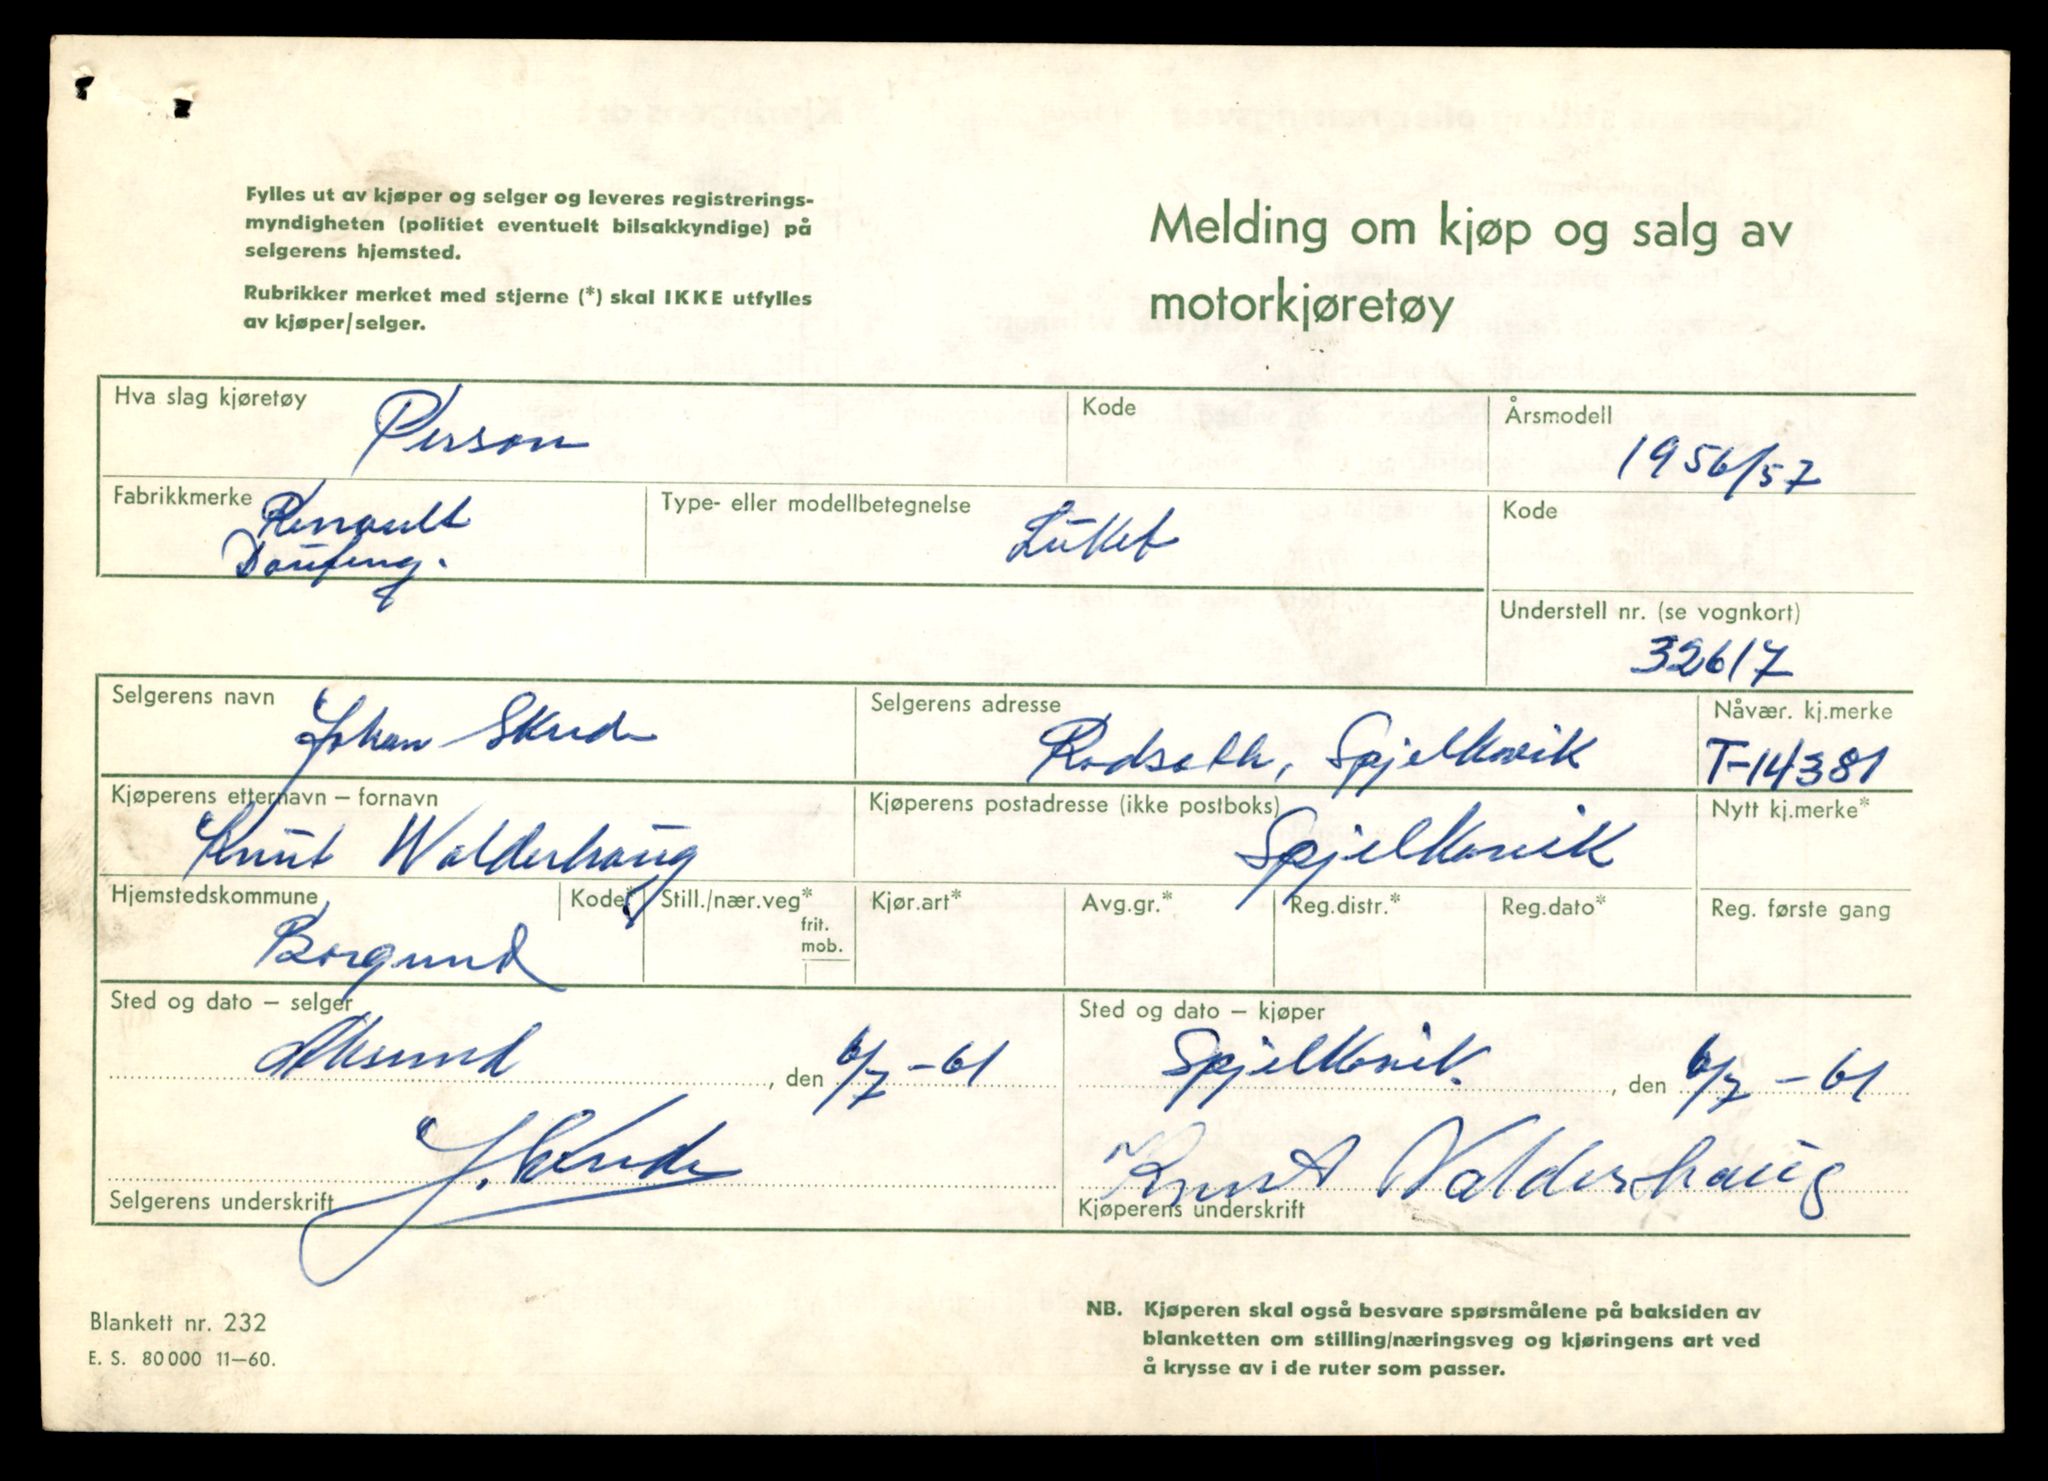 Fylles ut av kjøper og selger og leveres registrerings-
myndigheten (politiet eventuelt bilsakkyndige) på
selgerens hjemsted.
Rubrikker merket med stjerne (*) skal IKKE utfylles
av kjøper/selger.
Melding om kjøp og salg av
motorkjøretøy
Hva slag kjøretøy
Person
Kode
Årsmodell
1956/57
Fabrikkmerke
Renault
Doufing.
Type- eller modellbetegnelse
Lukket
Kode
Understell nr. (se vognkort)
32617
Selgerens navn
Johan Skude
Selgerens adresse
Rodseth, Spjelkavik
Nåvær. kj.merke
T-14381
Kjøperens etternavn – fornavn
Knut Walderhaug
Kjøperens postadresse (ikke postboks)
Spjelkavik
Nytt kj.merke*
Hjemstedskommune
Borgund
Kode*
Still./nær.veg*
frit.
mob.
Kjør.art*
Avg.gr.*
Reg.distr.*
Reg.dato*
Reg. første gang
Sted og dato – selger
Ålesund, den 6/7-61
Sted og dato – kjøper
Spjelkavik., den 6/7-61
J. Skude
Selgerens underskrift
Knut Valderhaug
Kjøperens underskrift
Blankett nr. 232
E. S. 80000 11–60.
NB. Kjøperen skal også besvare spørsmålene på baksiden av
blanketten om stilling/næringsveg og kjøringens art ved
å krysse av i de ruter som passer.